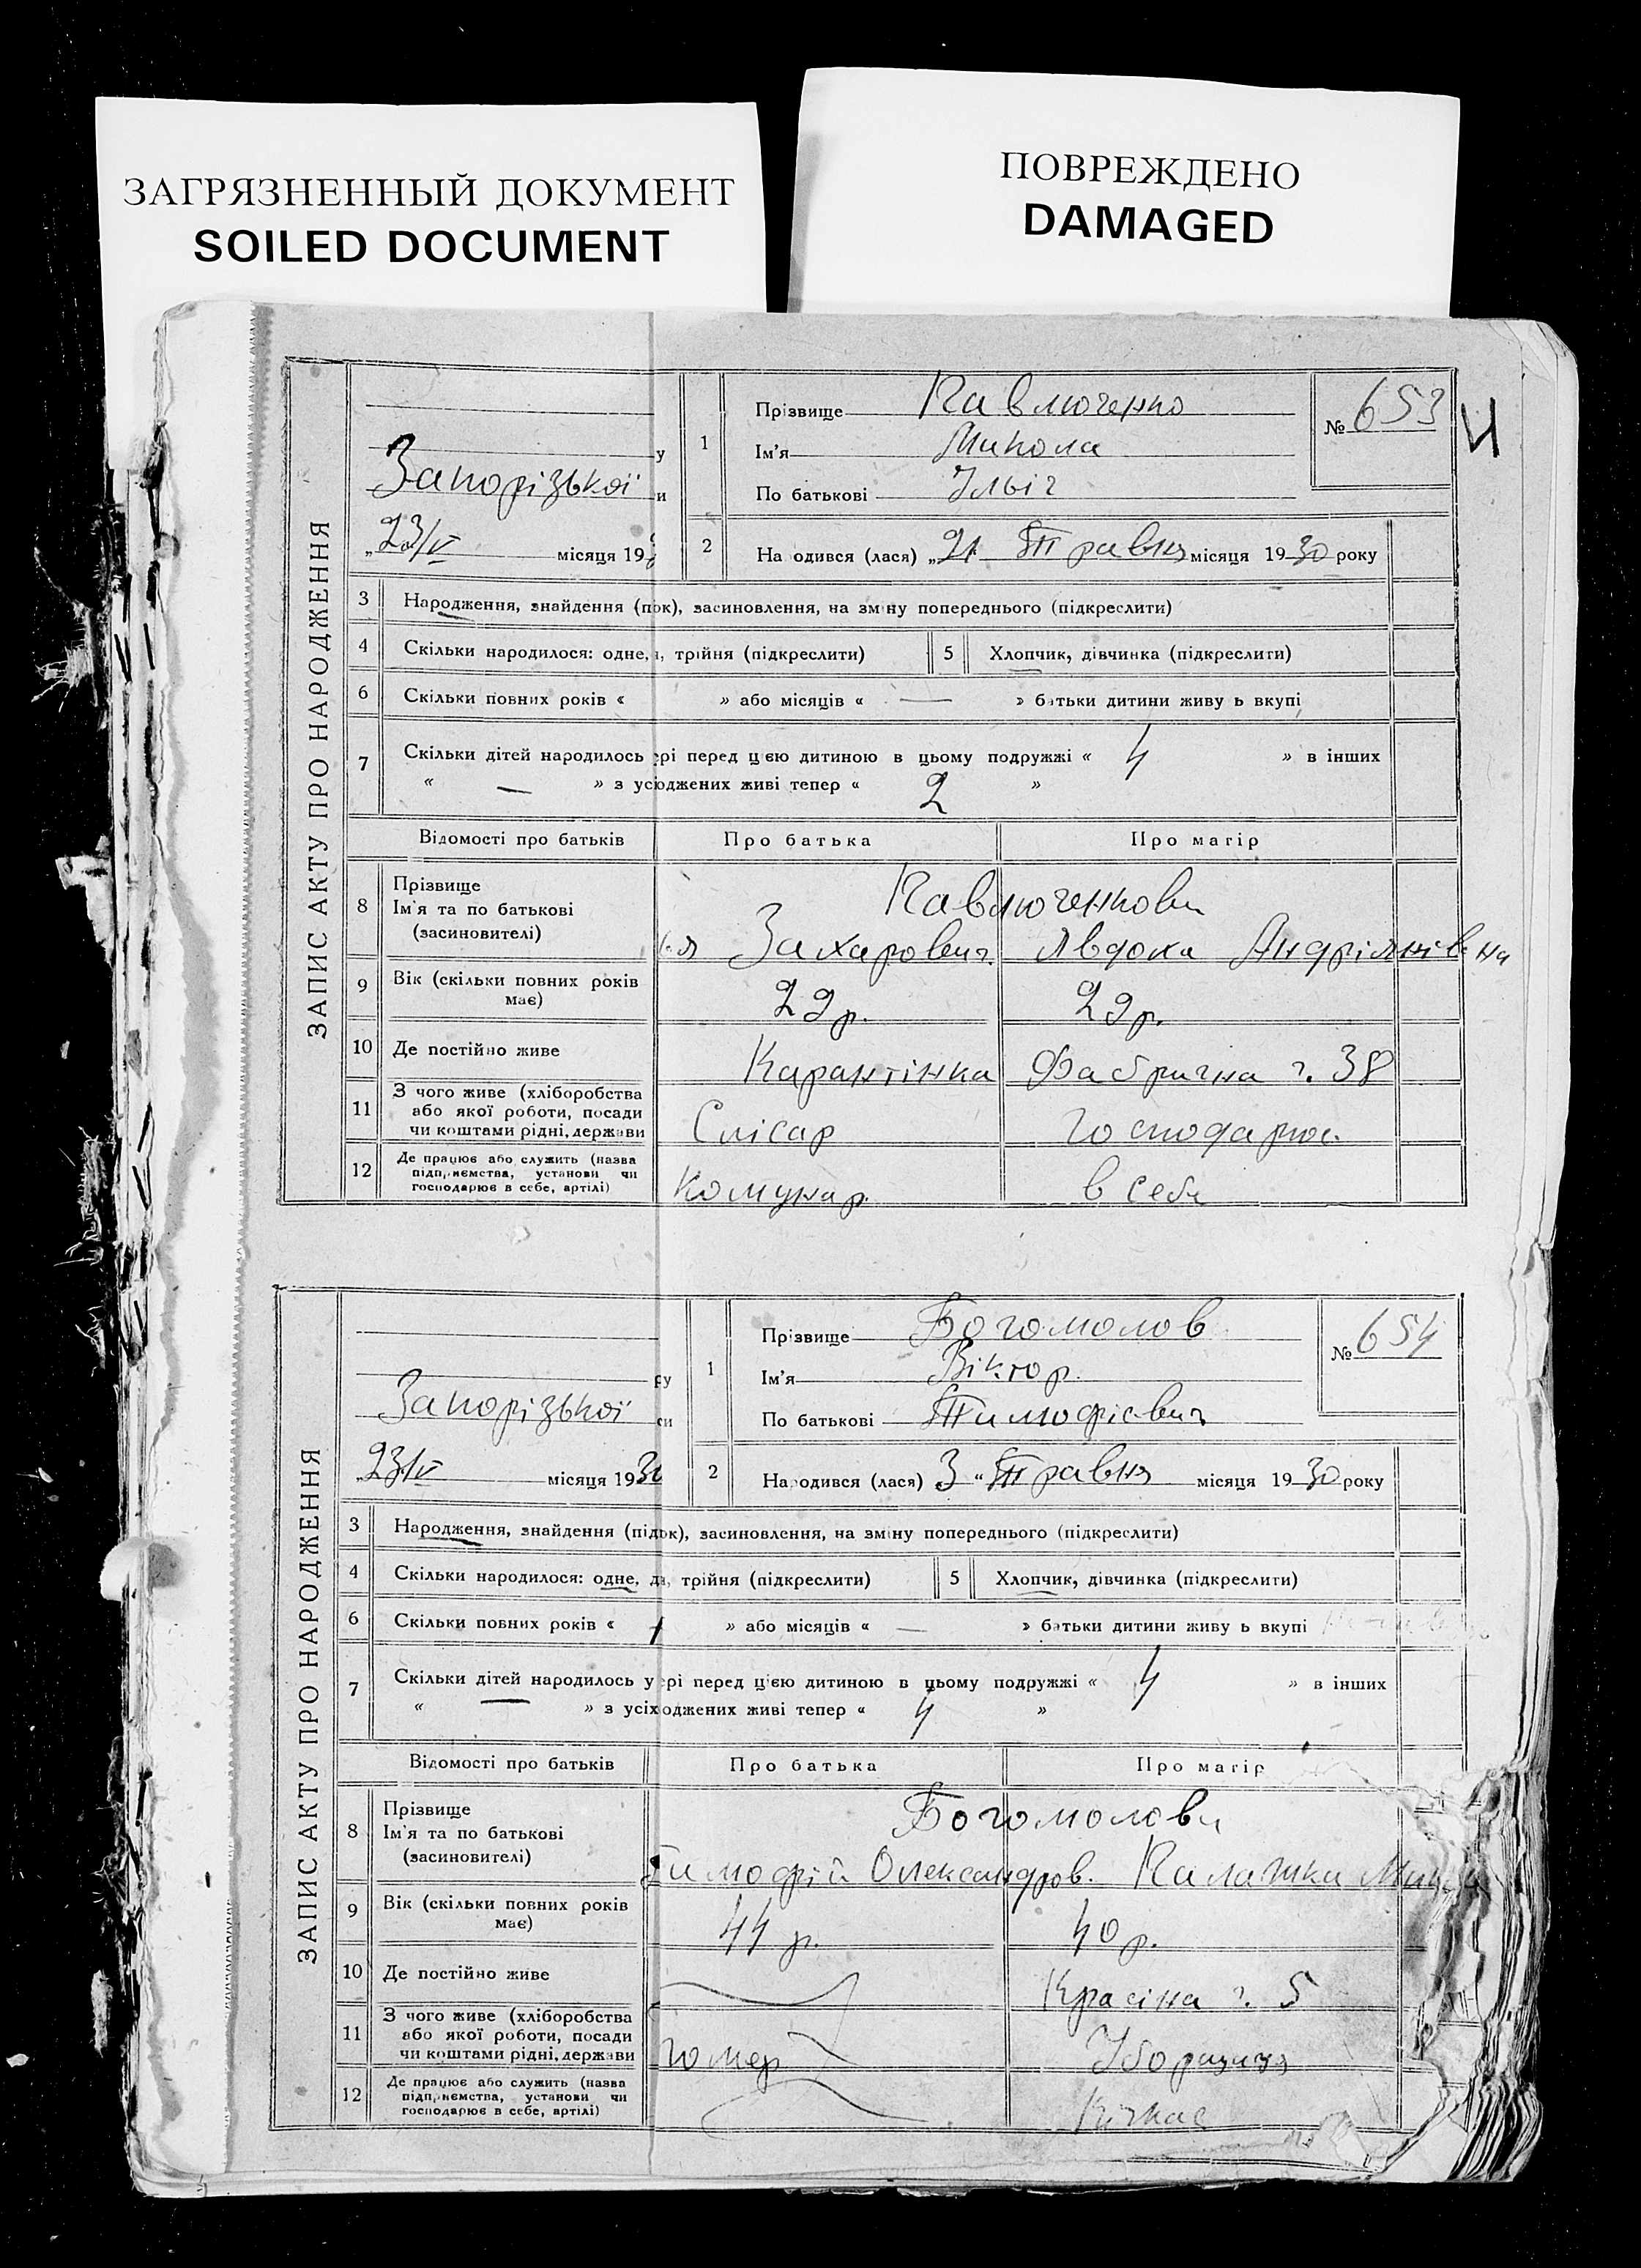 ЗАГРЯЗНЕННЫЙ ДОКУМЕНТ
SOILED DOCUMENT
ПОВРЕЖДЕНО
DAMAGED
ЗАПИС АКТУ ПРО НАРОДЖЕННЯ
Запорізької
у
и
„23/V місяця 19
1
Прізвище Павлюченко
Ім'я Микола
По батькові Ільіч
№ 653
Ч
2
На одився (лася) „21 Травня місяця 1930 року
3 Народження, знайдення (п ок), засиновлення, на зміну попереднього (підкреслити)
4 Скільки народилося: одне, трійня (підкреслити) 5 Хлопчик, дівчинка (підкреслити)
6 Скільки повних років « » або місяців « — » батьки дитини живу ь вкупі
7 Скільки дітей народилось рі перед цією дитиною в цьому подружжі « 4 » в інших
« — » з усюджених живі тепер « 2 »
Відомості про батьків Про батька Про матір
8 Прізвище
Ім'я та по батькові
(засиновителі)
Павлюченкови
Захарович Явдоха Андріянівна
9 Вік (скільки повних років має) 29 р. 29 р.
10 Де постійно живе Карантінка Фабрична ч. 38
11 З чого живе (хліборобства
або якої роботи, посади
чи коштами рідні, держави
Слісар Господарює.
12 Де працює або служить (назва
підприємства, установи чи
господарює в себе, артілі)
Комунар. в себе
ЗАПИС АКТУ ПРО НАРОДЖЕННЯ
ру
Запорізької си
„23/V місяця 1930
1
Прізвище Богомолов
Ім'я Віктор.
По батькові Тимофієвич
№ 654
2
Народився (лася) 3 “ Травня місяця 1930 року
3 Народження, знайдення (підок), засиновлення, на зміну попереднього (підкреслити)
4 Скільки народилося: одне, д , трійня (підкреслити) 5 Хлопчик, дівчинка (підкреслити)
6 Скільки повних років « 1 » або місяців « — » батьки дитини живу ь вкупі
7 Скільки дітей народилось у рі перед цією дитиною в цьому подружжі « 4 » в інших
« — » з усіходжених живі тепер « 4 »
Відомості про батьків Про батька Про матір
8 Прізвище
Ім'я та по батькові
(засиновителі)
Богомолови
Тимофій Олександров. Палажка
9 Вік (скільки повних років має) 44 р. 40 р.
10 Де постійно живе Красіна ч. 5
11 З чого живе (хліборобства
або якої роботи, посади
чи коштами рідні, держави
помер Уборщиця
12 Де працює або служить (назва
підприємства, установи чи
господарює в себе, артілі)
Кічкас